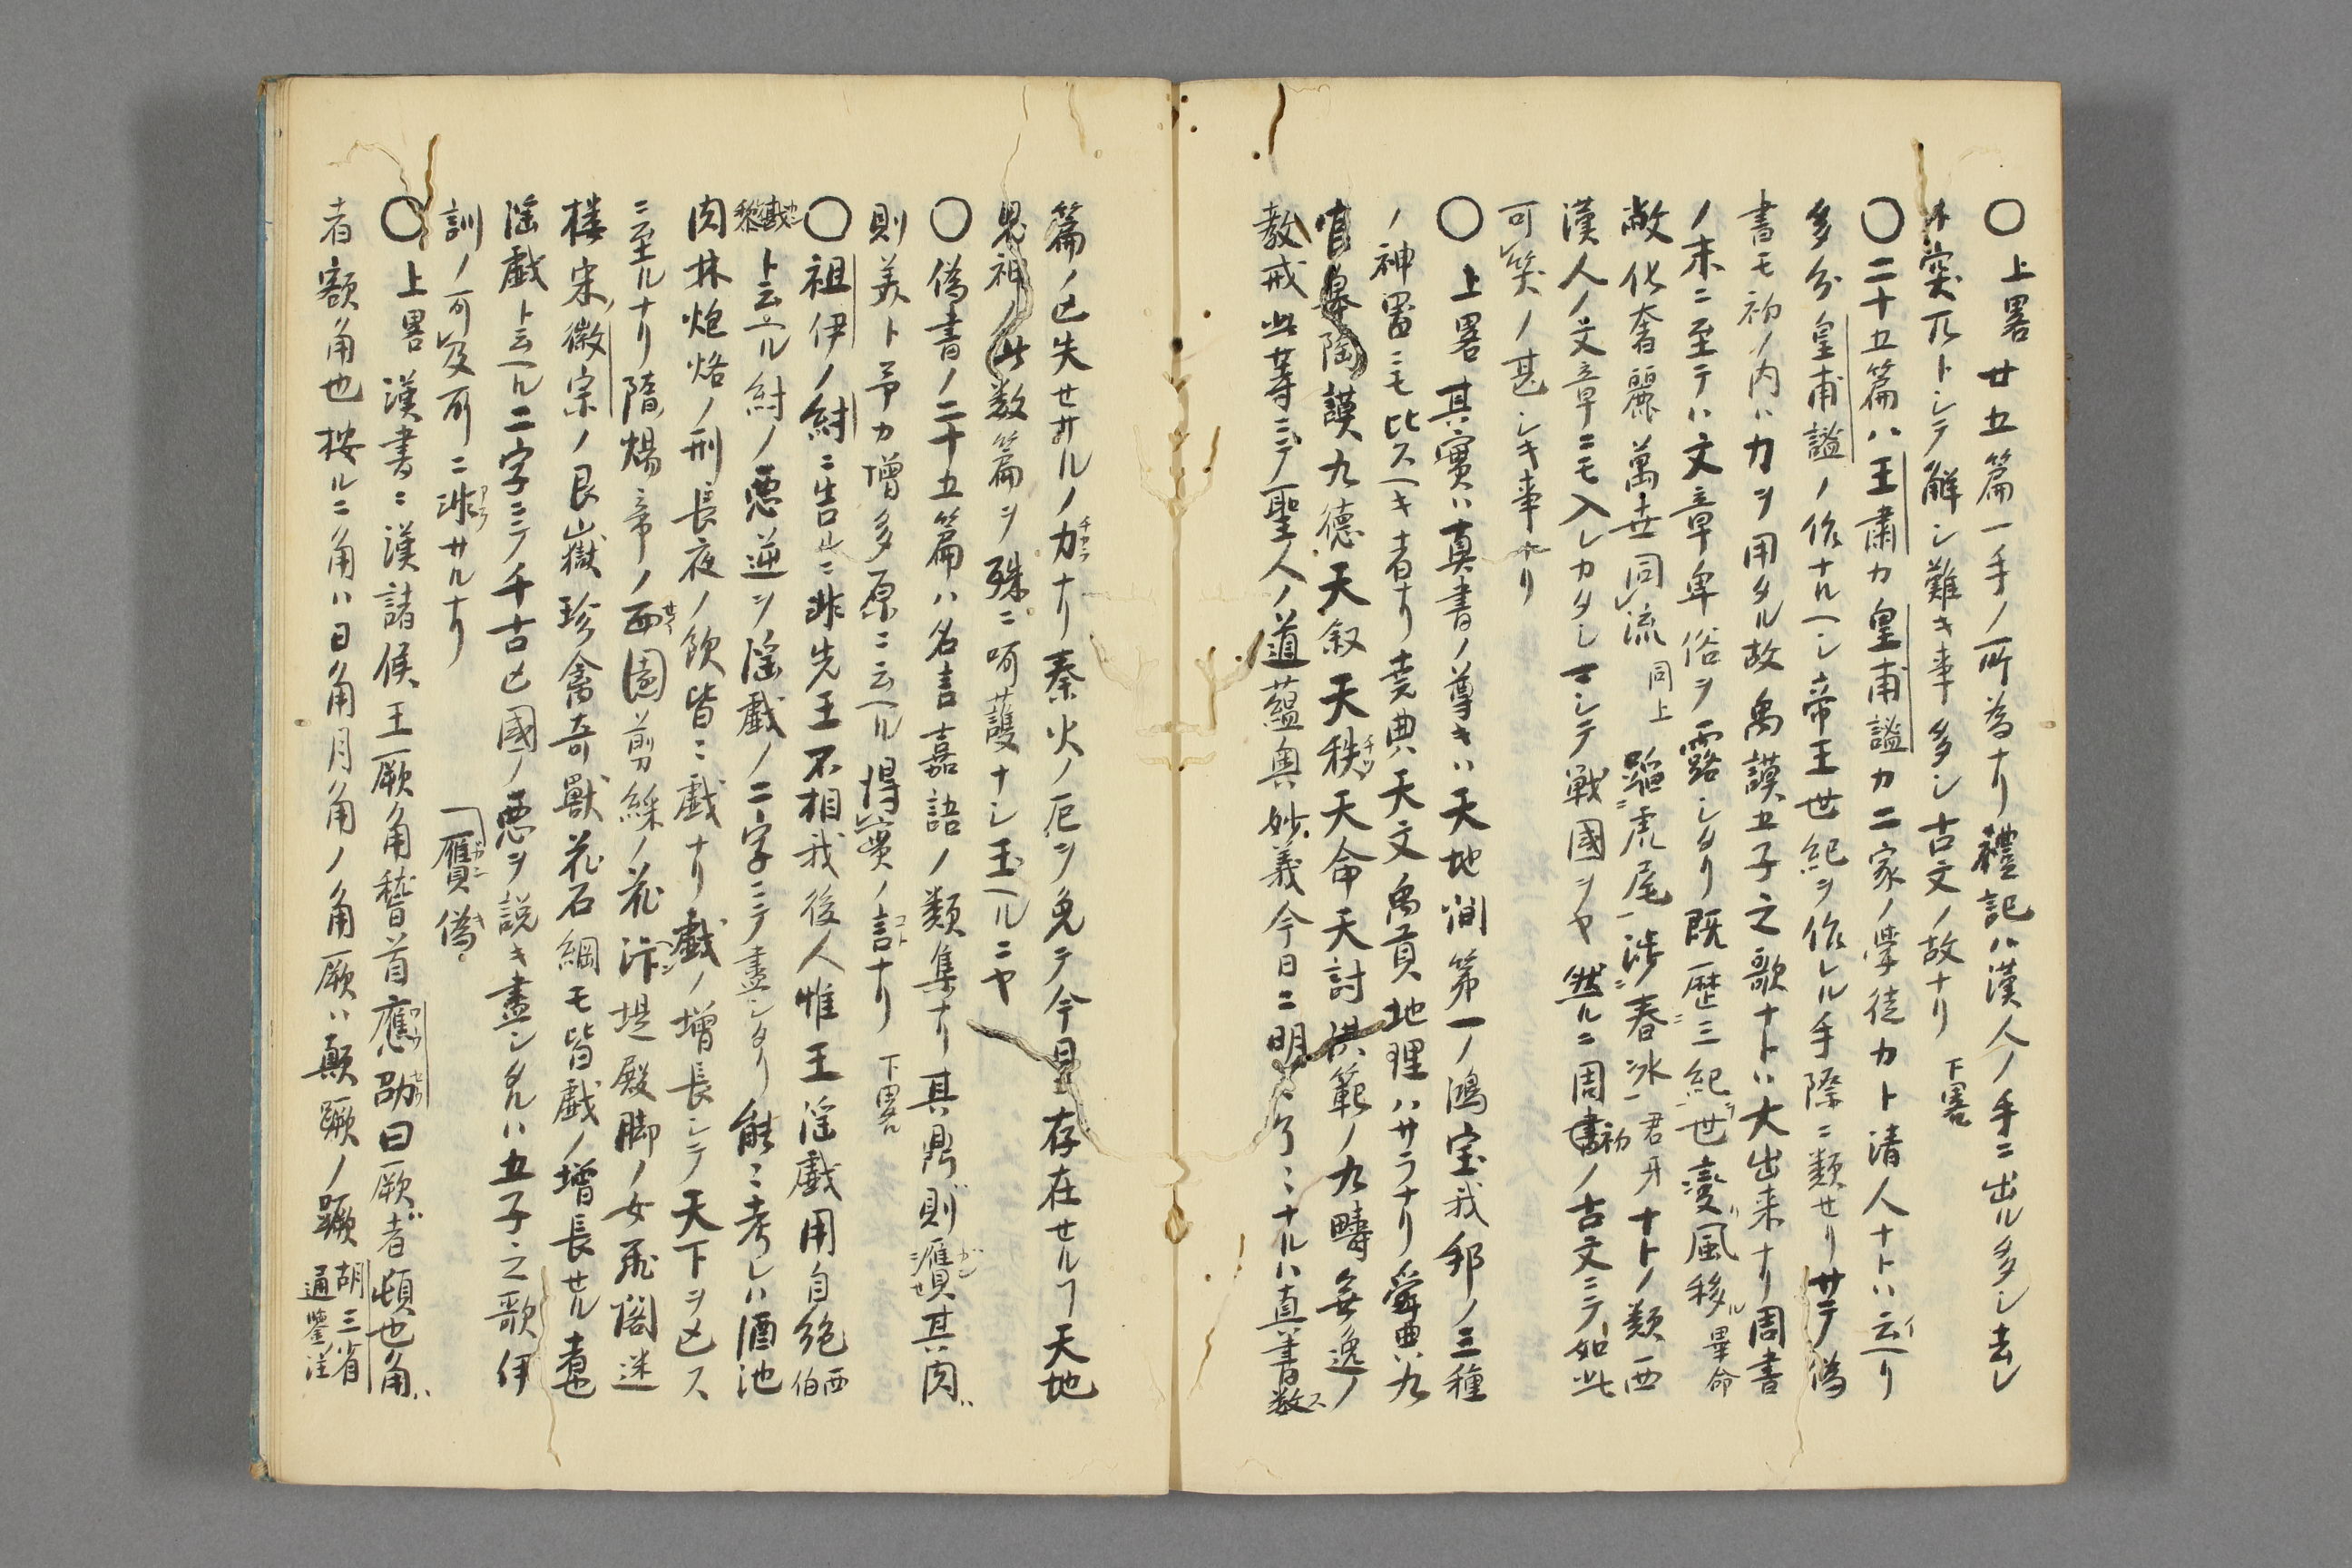 ○上畧廿五篇一手ノ所為ナリ禮記ハ漢人ノ手ニ出ル多シ去レ
𪜈突兀トシテ解シ難キ事多シ古文ノ故ナリ下畧
○二十五篇ハ王肅カ皇甫謐カ二家ノ學徒カト清人ナトハ云ヘリ
多分皇甫謐ノ作ナルヘシ帝王世紀ヲ作レル手際ニ類セリサテ偽
書モ初ノ内ハ力ヲ用タル故禹謨五子之歌ナトハ大出来ナリ周書
ノ末ニ至テハ文章卑俗ヲ露シタリ既歴三紀世變風移畢命
敝化奢麗萬世同流同上蹈虎尾渉春冰君牙ナトノ類西
漢人ノ文章ニモ入レカタシマシテ戦國ヲヤ然ルニ周書初ノ古文ニテ如此
可笑ノ甚シキ事ナリ
○上畧其實ハ真書ノ尊キハ天地間第一ノ鴻宝我邦ノ三種
ノ神噐ニモ比スヘキ者ナリ堯典天文禹貢地理ハサラナリ舜典九
官皋陶謨九德天叙天秩天命天討洪範ノ九疇無逸ノ
教戒此等ニテ聖人ノ道蘊奥妙義今日ニ明ラナルハ真書数
篇ノ亡失せサルノ力ナリ秦火ノ厄ヲ免テ今日存在せルヿ天地
鬼神ノ此数篇ヲ殊ニ呵護ナシ玉ヘルニヤ
○偽書ノ二十五篇ハ名言嘉語ノ類集ナリ其鼎則贋其肉
則美ト予カ增多原ニ云ヘル得實ノ言ナリ下畧
○祖伊ノ紂ニ告ルニ非先王不相我後人惟王淫戲用自絶西伯
戡黎ト云ヘル紂ノ悪逆ヲ淫戲ノ二字ニテ盡シタリ能ミ考レハ酒池
肉林炮烙ノ刑長夜ノ飲皆ミ戲ナリ戲ノ増長シテ天下ヲ亡ス
ニ至ルナリ隋煬帝ノ西園剪綵ノ花汴堤殿脚ノ女飛閣迷
楼宋徽宗ノ艮嶽珍禽奇獸花石綱モ皆戲ノ増長せル者也
淫戲ト云ヘル二字ニテ千古亡國ノ悪ヲ説キ盡シタルハ五子之歌伊
訓ノ可及所ニ非サルナリ贋偽
○上畧漢書ニ漢諸侯王厥角稽首應劭曰厥者頓也角
者額角也按ルニ角ハ日角月角ノ角厥ハ顛蹶ノ蹶胡三省通鑒注